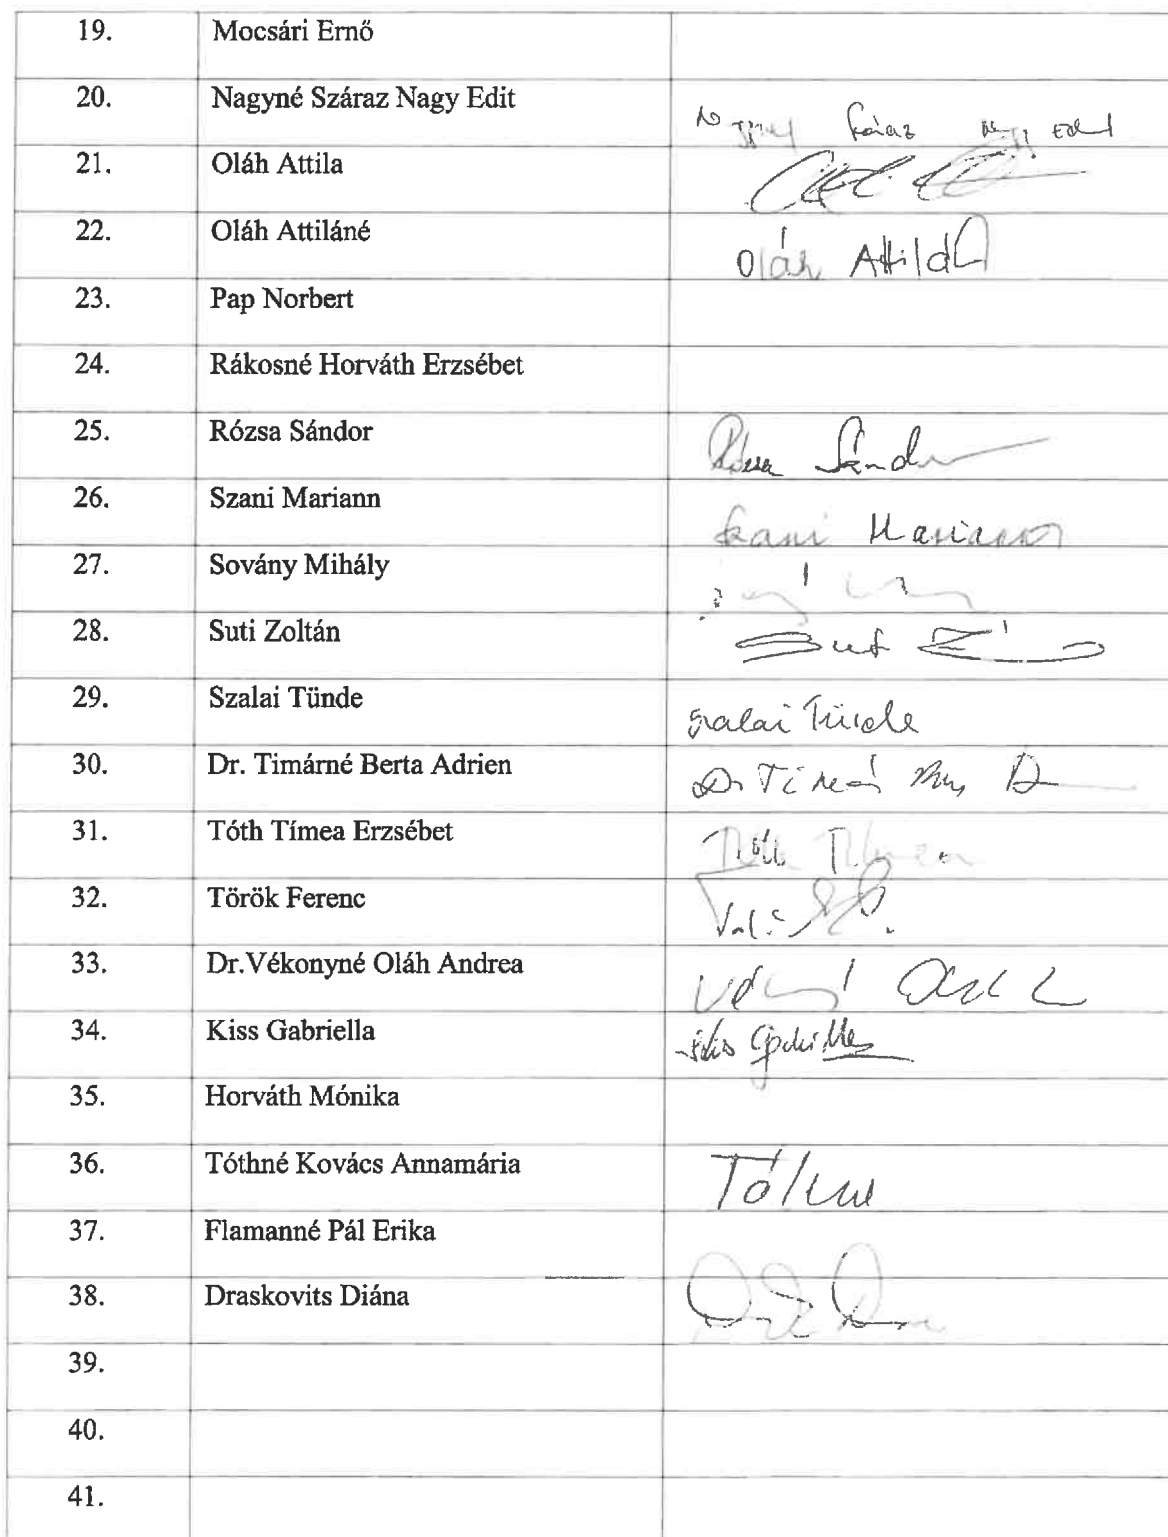 19. Mocsári Ernő
20. Nagyné Száraz Nagy Edit
21. Oláh Attila
22. Oláh Attiláné Oláh Attila
23. Pap Norbert
24. Rákosné Horváth Erzsébet
25. Rózsa Sándor Rózsa Sándor
26. Szani Mariann Szani Mariann
27. Sovány Mihály
28. Suti Zoltán
29. Szalai Tünde Szalai Tünde
30. Dr. Timárné Berta Adrien
31. Tóth Tímea Erzsébet Tóth Tímea
32. Török Ferenc
33. Dr.Vékonyné Oláh Andrea
34. Kiss Gabriella Kiss Gabriella
35. Horváth Mónika
36. Tóthné Kovács Annamária Tóthné
37. Flamanné Pál Erika
38. Draskovits Diána
39.
40.
41.